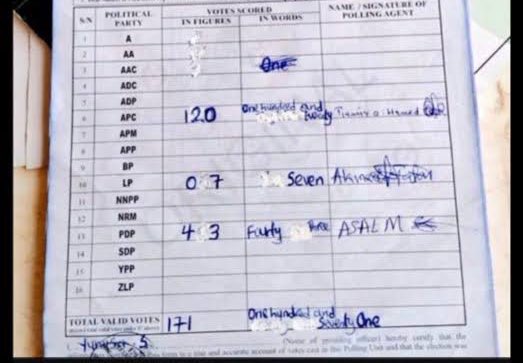 S/N POLITICAL PARTY VOTES SCORED NAME / SIGNATURE OF POLLING AGENT
IN FIGURES IN WORDS
1 A
2 AA
3 AAC One
4 ADC
5 ADP
6 APC 120 One hundred and twenty Hamed
7 APM
8 APP
9 BP
10 LP 0 7 Seven
11 NNPP
12 NRM
13 PDP 4 3 Fourty three ASALM
14 SDP
15 YPP
16 ZLP
TOTAL VALID VOTES 171 One hundred and Seventy One
(Name of presiding officer) hereby certify that the
is a true and accurate account of votes cast in this Polling Unit and that the election was